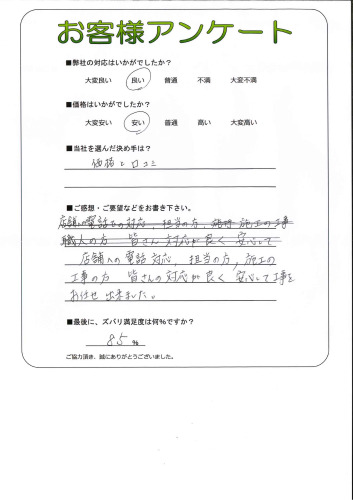 お客様アンケート
■弊社の対応はいかがでしたか？
大変良い　良い　普通　不満　大変不満
■価格はいかがでしたか？
大変安い　安い　普通　高い　大変高い
■当社を選んだ決め手は？
価格と口コミ
■ご感想・ご要望などをお書き下さい。
店舗への電話での対応、担当の方、施工の工事
職人の方　皆さん対応が良く　安心して
店舗への電話対応、担当の方、施工の
工事の方　皆さんの対応が良く安心して工事を
お任せ出来ました。
■最後に、ズバリ満足度は何％ですか？
85％
ご協力頂き、誠にありがとうございました。